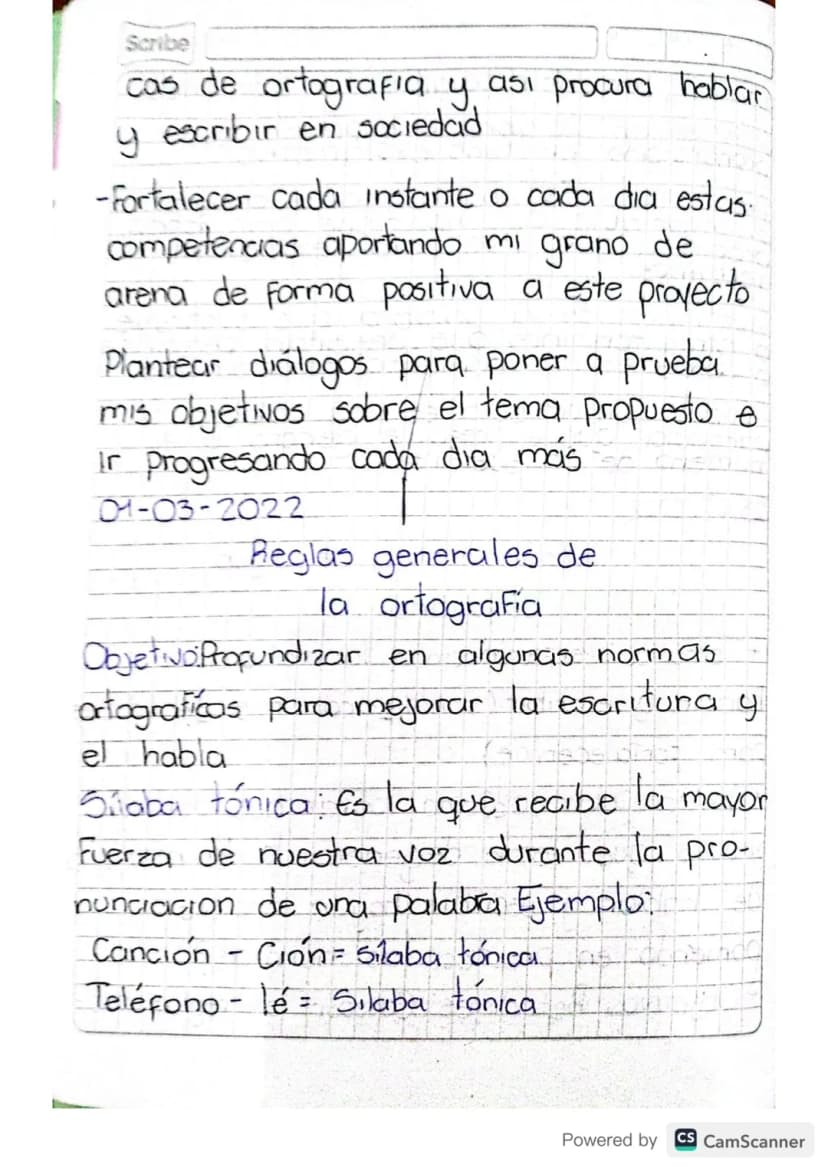 Scribe
cas de ortografia y asi procura hablar
y escribir en sociedad
-Fortalecer cada instante o cada dia estas
competencias aportando mi grano de
arena de forma positiva a este proyecto
Plantear diálogos para poner a prueba
mis objetivos sobre el tema propuesto e
Ir progresando cada dia más
01-03-2022
Reglas generales de
la ortografía
Objetivo: Profundizar en algunas normas
ortografícas para mejorar la escritura y
el habla
Sílaba tónica: Es la que recibe la mayor
fuerza de nuestra voz durante la pro-
nunciacion de una palabra Ejemplo:
Canción - Ción = Sílaba tónica
Teléfono - lé = Silaba tónica
Powered by CS CamScanner